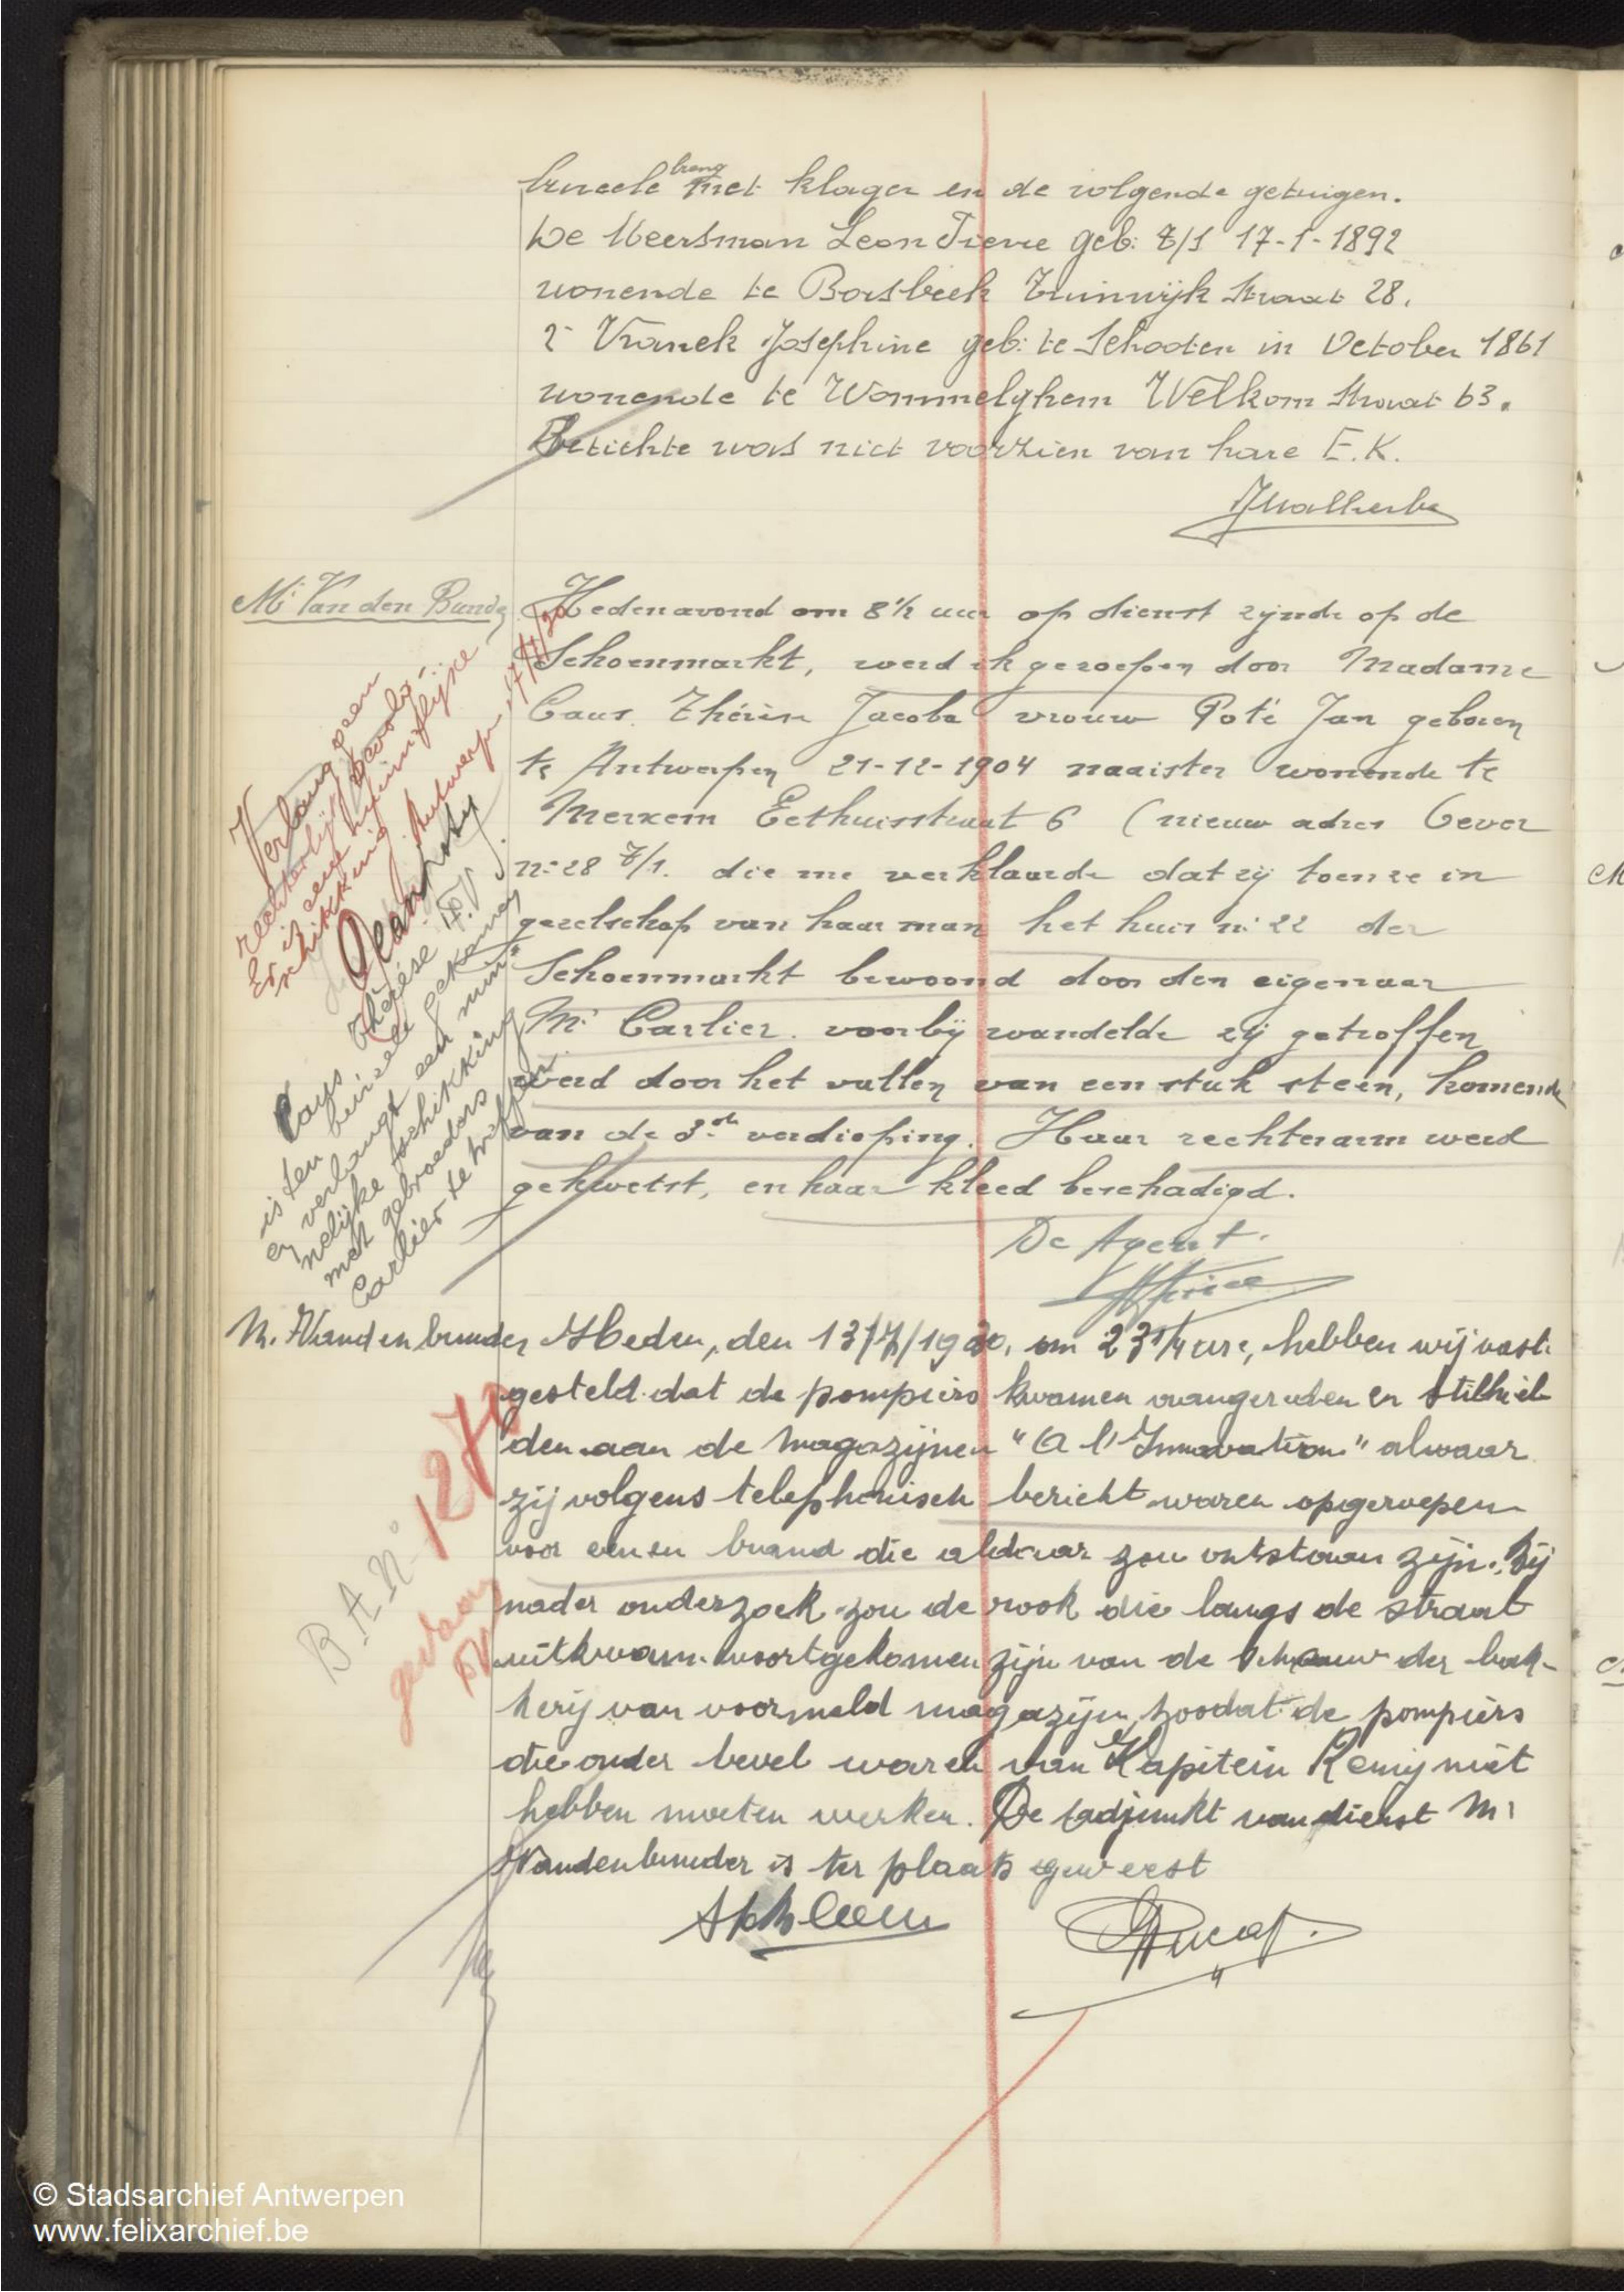 bureele breng met klager en de volgende getuigen.
De Meersman Leon Pierre geb: t/s 17-1-1892
wonende te Borsbeek Tuinwijk straat 28.
2- Vranck Josephine geb: te Schooten in October 1861
wonende te Wommelghem Welkom straat 63.
Betichte was niet voorzien van hare E.K.
JMalherbe
Mr Van den Bunder
Hedenavond om 8½ uur op dienst zijnde op de
Schoenmarkt, werd ik geroepen door Madame
Caus Thérèse Jacoba vrouw Poté Jan geboren
te Antwerpen 21-12-1904 naaister wonende te
Merxem Eethuisstraat 6 (nieuw adres Gever
n: 28 t/s. die me verklaarde dat zij toen ze in
gezelschap van haar man het huis n: 22 der
Schoenmarkt bewoond door den eigenaar
Mr Carlier. voorbij wandelde zij getroffen
werd door het vallen van een stuk steen, komende
van de 3de verdieping. Haar rechterarm werd
gekwetst, en haar kleed beschadigd.
De Agent.
Verlang geen
rechterlijk vervolg
is eene minnelijke
schikking
Antwerpen, 17/7/30
Caus Thérèse
is ten bureele gekomen
en verlangt een min-
nelijke schikking
met gebroeders
Carlier te treffen
M. Vandenbunder
Heden, den 13/7/1930, om 23¼ ure, hebben wij vast-
gesteld dat de pompiers kwamen aangereden en stilhiel-
den aan de magazijnen "A l'Innovation" alwaar
zij volgens telephonisch bericht waren opgeroepen
voor eenen brand die aldaar zou ontstaan zijn. Bij
nader onderzoek zou de rook die langs de straat
uitkwam voortgekomen zijn van de schouw der bak-
kerij van voormeld magazijn, zoodat de pompiers
die onder bevel waren van Kapitein Remy niet
hebben moeten werken. De adjunkt van dienst Mr
Vandenbunder is ter plaats geweest
B.A. No 1272
gedaan
© Stadsarchief Antwerpen
www.felixarchief.be